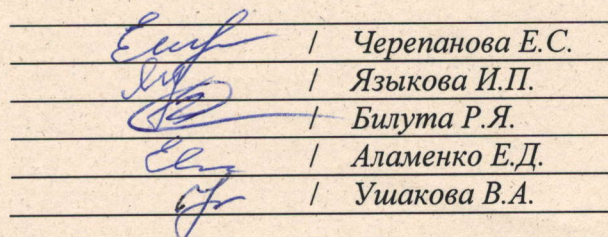 / Черепанова Е.С.
/ Языкова И.П.
/ Билута Р.Я.
/ Аламенко Е.Д.
/ Ушакова В.А.